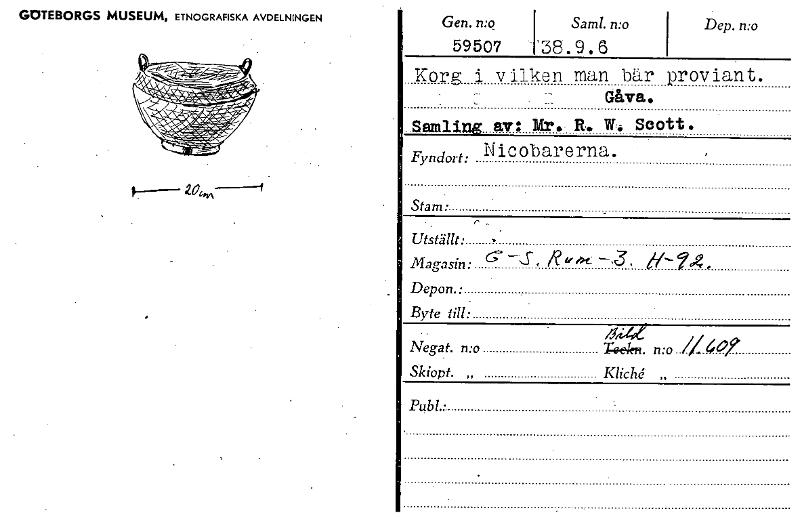 GÖTEBORGS MUSEUM, ETNOGRAFISKA AVDELNINGEN
20 cm
Gen. n:o Saml. n:o Dep. n:o
59507 '38.9.6
Korg i vilken man bär proviant.
Gåva.
Samling av: Mr. R. W. Scott.
Fyndort: Nicobarerna.
Stam:
Utställt:
Magasin: G-S. Rum-3. H-92.
Depon.:
Byte till:
Bild
Negat. n:o Teckn. n:o 11.609
Skiopt. „ Kliché „
Publ.: